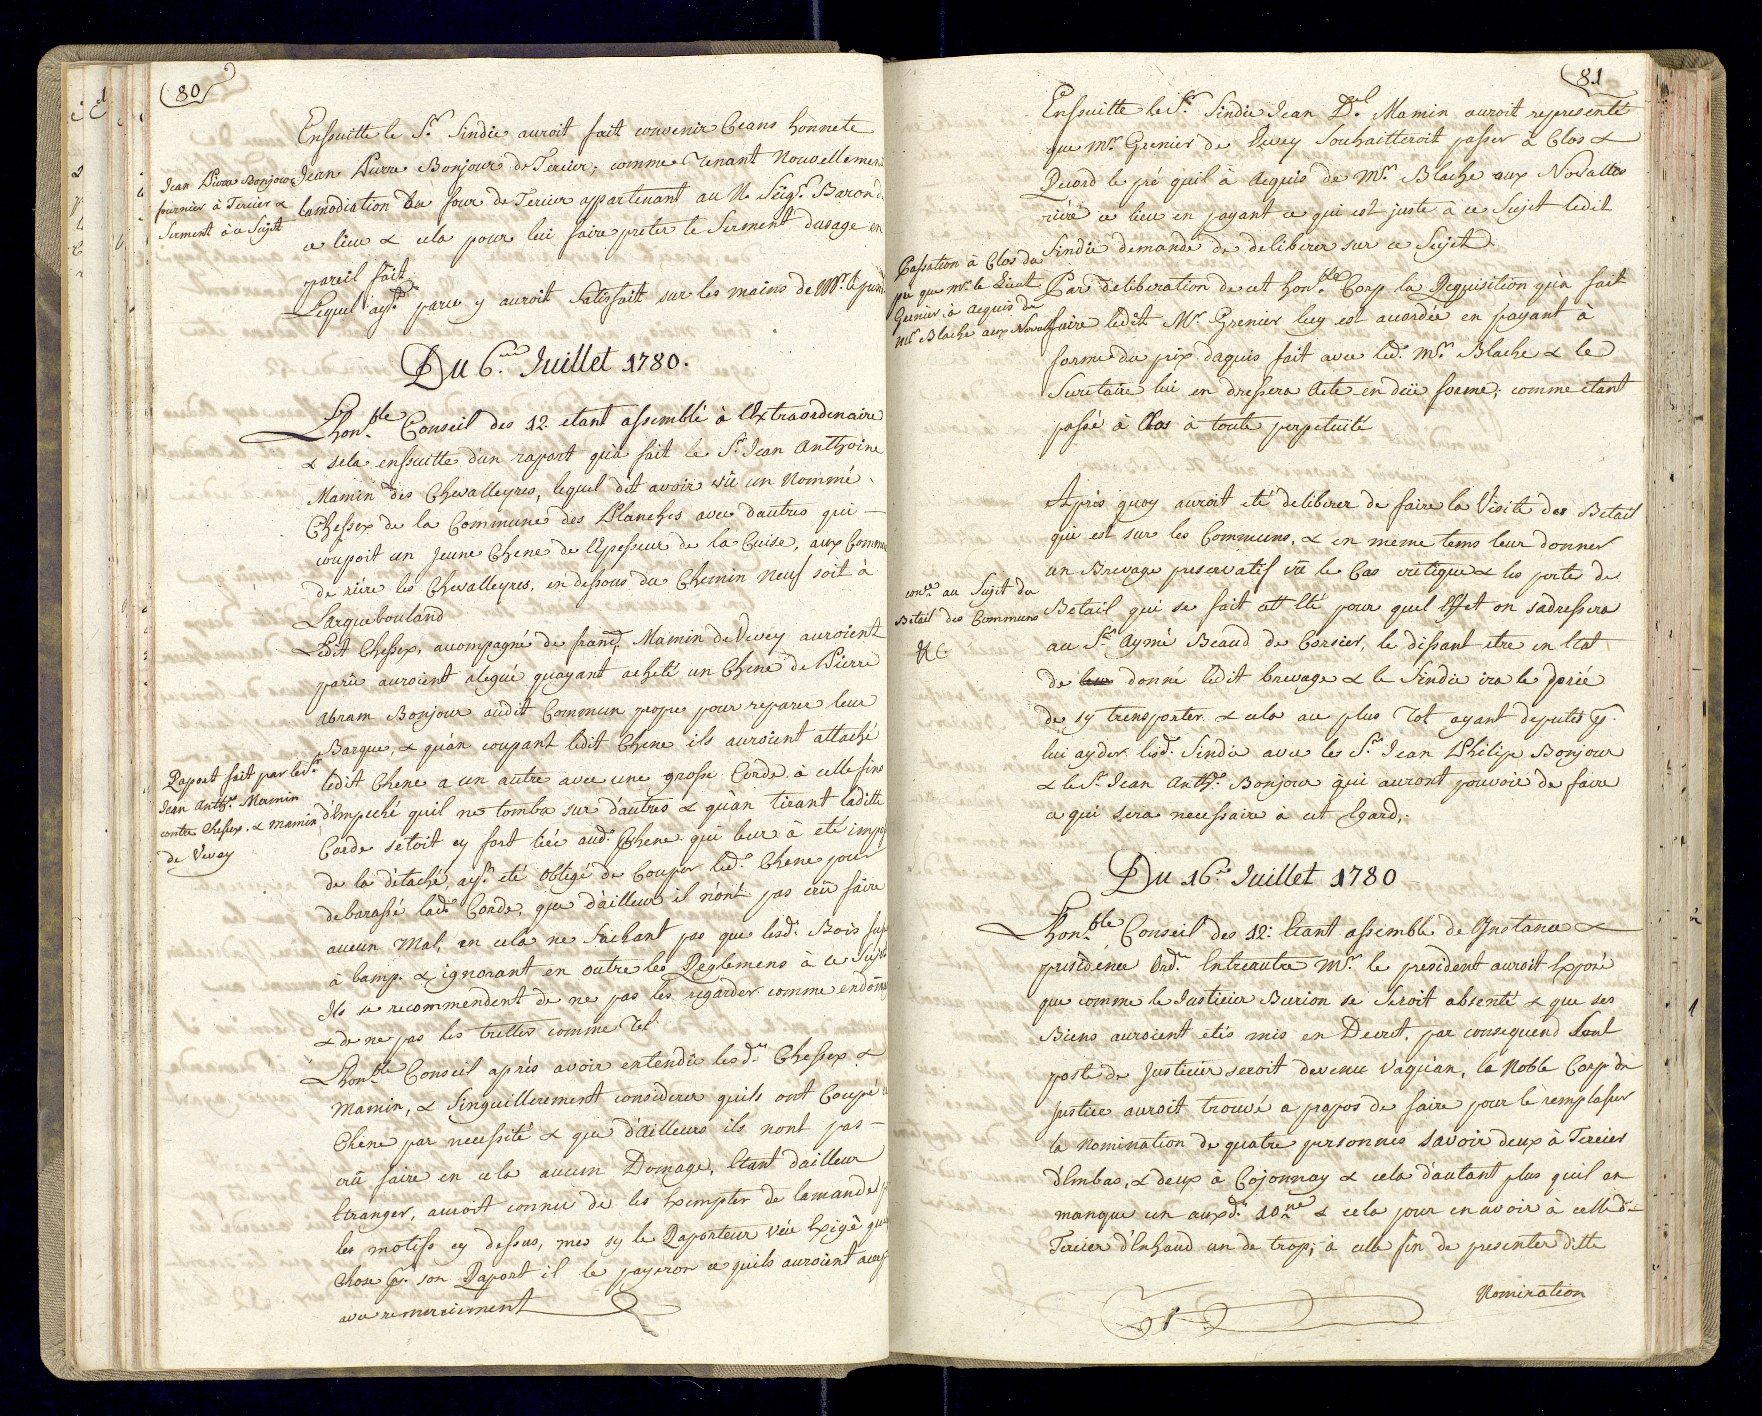 80
Ensuitte le S.r Sindic auroit fait convenir Ceans honnete
Jean Pierre Bonjour de Tercier, comme tenant Nouvellement
Jean Pierre Bonjour
fournier à Tercier &
Serment à ce Sujet
lamodiation du four de Tercier appartenant au N. Seig.r Baron de
ce lieu & cela pour lui faire preter le Serment dusage en
pareil fait
Lequel ay.t paru y auroit Satisfait sur les mains de Mr. le
Du 6.me Juillet 1780.
Lhon.ble Conseil des 12 etant assemblé à lExtraordinaire
& sela ensuitte dun raport quà fait le S.r Jean Anthoine
Mamin des Chevalleyres, lequel dit avoir vû un Nommé
Chessex de la Commune des Planches avec dautres qui —
coupoit un jeune Chene de lEpesseur de la Cuise, aux Commu
de riére les Chevalleyres, en dessous du Chemin Neuf soit à
Larquebouland
Ledit Chessex, acompagné de franç. Mamin de Vevey auroient
parû auroient alegué quayant acheté un Chene de Pierre
Abram Bonjour audit Commun propre pour reparer leur
Barque, & quàn coupant ledit Chene ils auroient attaché
Raport fait par le S.r
Jean Anth.ne Mamin
contre Chessex & Mamin
de Vevey
ledit Chene a un autre avec une grosse Corde à celle fins
dEmpeché quil ne tomba sur dautres & quàn tirant laditte
Corde setoit sy fort liée aud. Chene qui leur à eté impo
de la détaché, ay.t eté obligé de Couper led. Chene pour
debarassé lad.e Corde, que dàilleur il nònt pas crû faire
aucun Mal, en cela ne Sachant pas que lesd. Bois fus
à bamp. & ignorant en outre les Reglemens à ce Sujet
Ils se recommendent de ne pas les regarder comme endom
& de ne pas les tretter comme Tel
Lhon.ble Conseil aprés avoir entendû lesd.s Chessex &
Mamin, & Singuillerement considerer quils ont Coupé
Chene par necessité & que dàilleurs ils nont pas —
crû faire en cela aucun Domage, Etant dailleur
Etranger, auroit connu de les Exempter de lamande
les motifs cy dessus, mes sy le Raporteur véu Exigé qu
chose p.r son Raport il le payeron ce quils auroient
avec remerciement
81
Ensuitte le S.r Sindic Jean D.el Mamin auroit representé
que Mr. Grenier de Vevey Souhaitteroit passer à Clos &
Record le pré quil à Aequis de Mr. Blache aux Novalles
riére ce lieu en payant ce qui est juste à ce Sujet ledit
Sindic demande de deliberer sur ce Sujet
Passation à Clos du
pré que Mr. le Lieut
Grenier à Aequis de
Mr. Blache aux Novalles
Par deliberation de cet hon.ble Corp la Requisition quà fait
faire ledit Mr. Grenier luy est acordée en payant à
forme du prix daquis fait avec led. Mr. Blache & le
Secretaire lui en dressera Acte en düe forme, comme etant
passé à Clos à toute perpetuité
Aprés quoy auroit eté deliberer de faire la Visite des Betail
qui est sur les Communs, & en meme tems leur donner
un Brevage preservatif vû le Cas critique & les pertes de
con.ce au Sujet du
Betail des Communs
&c.
Betail qui se fait cet Eté pour quel Effet on sadressera
au S.r Aymé Beaud de Corsier, le dissant etre en Etat
de donné ledit brevage & le Sindic ira le prié
de sy transporter & cela au plus Tot ayant deputés p.r
lui ayder led. Sindic avec les S.r Jean Philipe Bonjour
& le S.r Jean Anth.e Bonjour qui auront pouvoir de faire
ce qui sera necessaire à cet Egard.
Du 16.e Juillet 1780
Lhon.ble Conseil des 12: Etant assemblé de Instance &
présidence Ord.re Entreautre Mr. le president auroit Exposé
que comme le Justicier Burion se Seroit absenté & que ses
Biens auroient etés mis en Decret, par consequend
poste de Justicier seroit devenu Vaquàn, le Noble Corp de
Justice auroit trouvé a propos de faire pour le remplasser
la Nomination de quatre personnes savoir deux à Tercier
dEmbas, & deux à Cojonnay & cela dàutant plus quil an
manque un auxd. 10.nes & cela pour en avoir à celle de
Tercier d'Enhaud un de trop, à celle fin de presenter ditte
Nomination